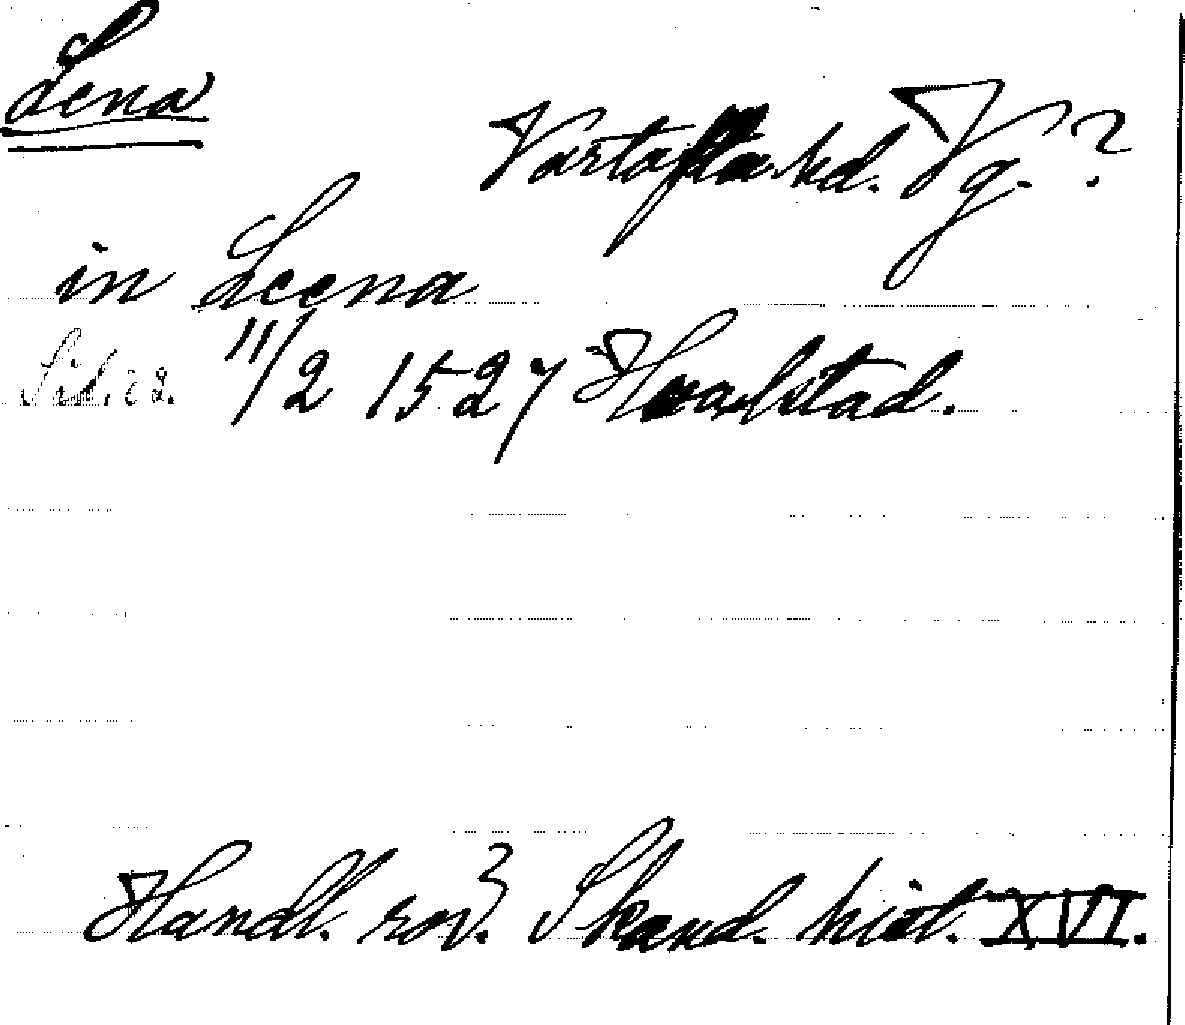 Lena
Vartofta hd. Vg.?
in Leena
Sid. 22. 11/2 1527 Hvalstad.
Handl. rör. Skand. hist. XVI.